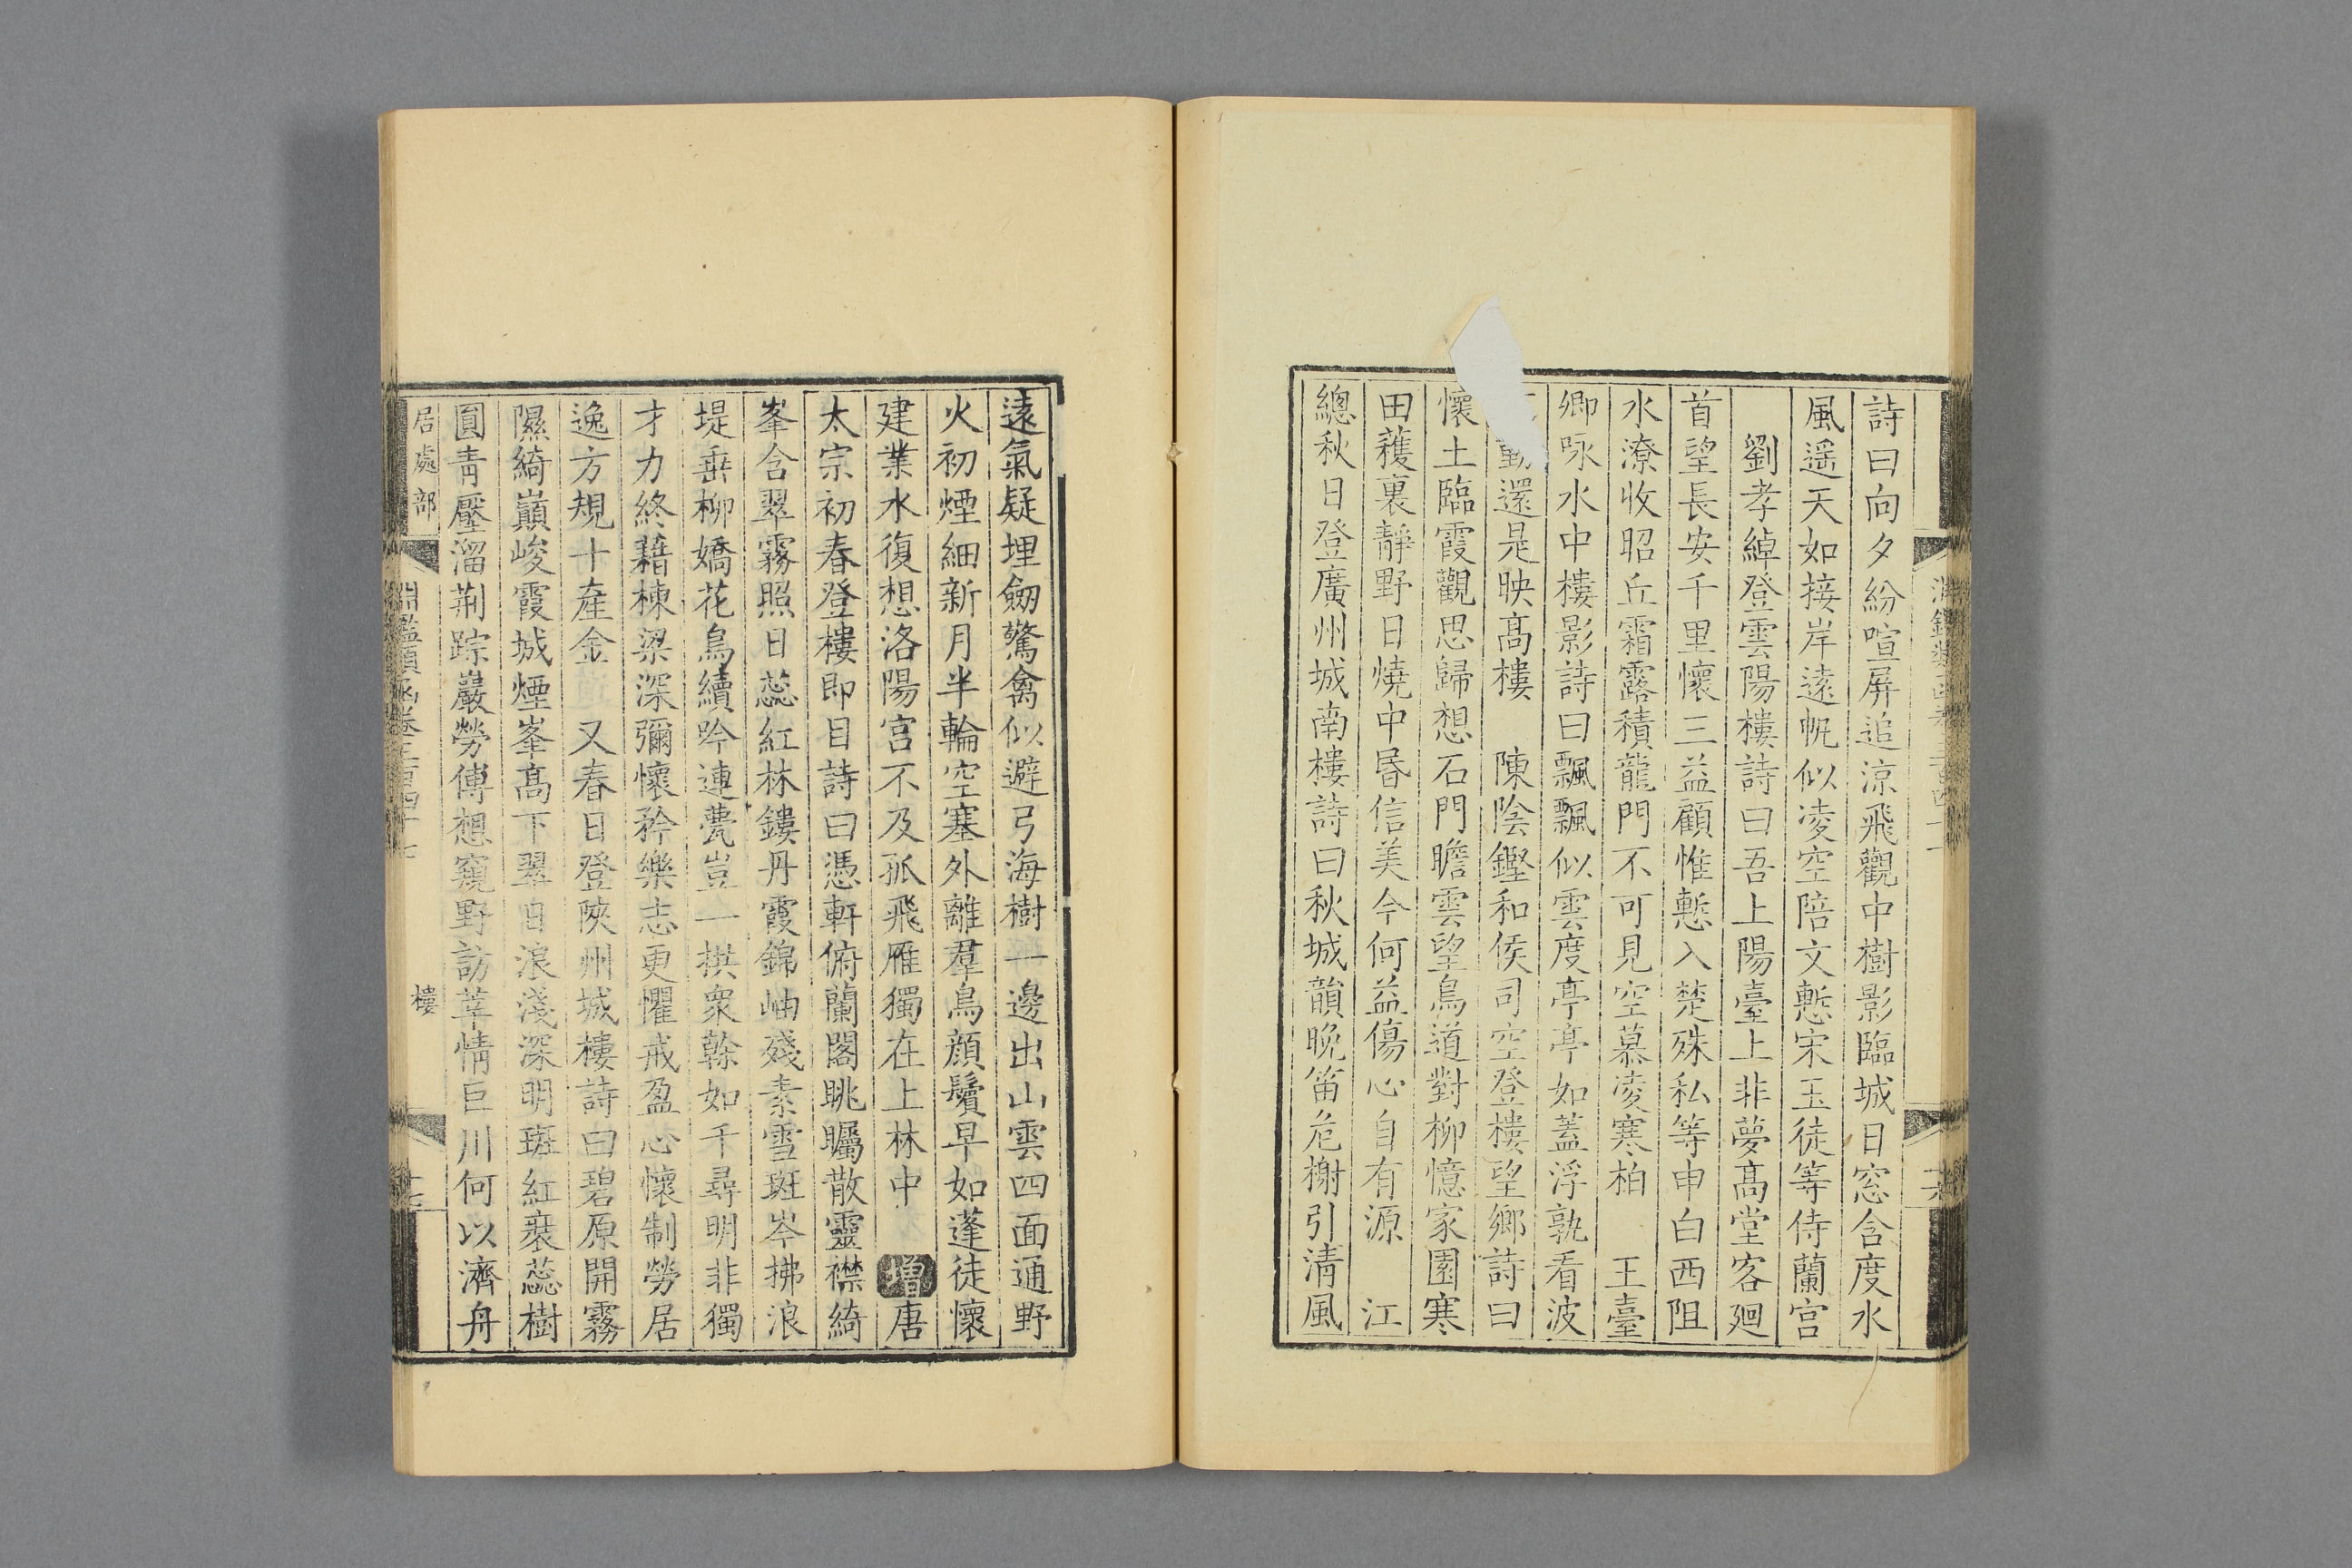 詩曰向夕紛喧屏追涼飛觀中樹影臨城日窓含度水
風遥天如接岸遠帆似凌空陪文慙宋玉徒等侍蘭宫
劉孝綽登雲陽樓詩曰吾上陽臺上非夢髙堂客廻
首望長安千里懷三益顧惟慙入楚殊私等申白西阻
水潦收昭丘霜露積龍門不可見空慕凌寒柏 王臺
卿咏水中樓影詩曰飄飄似雲度亭亭如蓋浮孰看波
動還是映髙樓 陳陰鏗和侯司空登樓望鄉詩曰
懷土臨霞觀思歸想石門瞻雲望鳥道對柳憶家園寒
田穫裏靜野日燒中昬信美今何益傷心自有源 江
總秋日登廣州城南樓詩曰秋城韻晚笛危榭引清風
遠氣疑埋劒驚禽似避弓海樹一邊出山雲四面通野
火初煙細新月半輪空塞外離羣鳥顔鬢早如蓬徒懷
建業水復想洛陽宫不及孤飛雁獨在上林中 增唐
太宗初春登樓即目詩曰憑軒俯蘭閣眺矚散靈襟綺
峯含翠霧照日蕊紅林鏤丹霞錦岫殘素雪斑岑拂浪
堤垂柳嬌花鳥續吟連甍豈一拱衆榦如千尋明非獨
才力終藉棟梁深彌懷矜樂志更懼戒盈心懷制勞居
逸方規十產金 又春日登陝州城樓詩曰碧原開霧
隰綺巔峻霞城煙峯髙下翠日浪淺深明斑紅褰蕊樹
圓青壓溜荆踪巖勞傅想窺野訪莘情巨川何以濟舟
居處部
淵鑑類函卷三百四十七
樓
十七